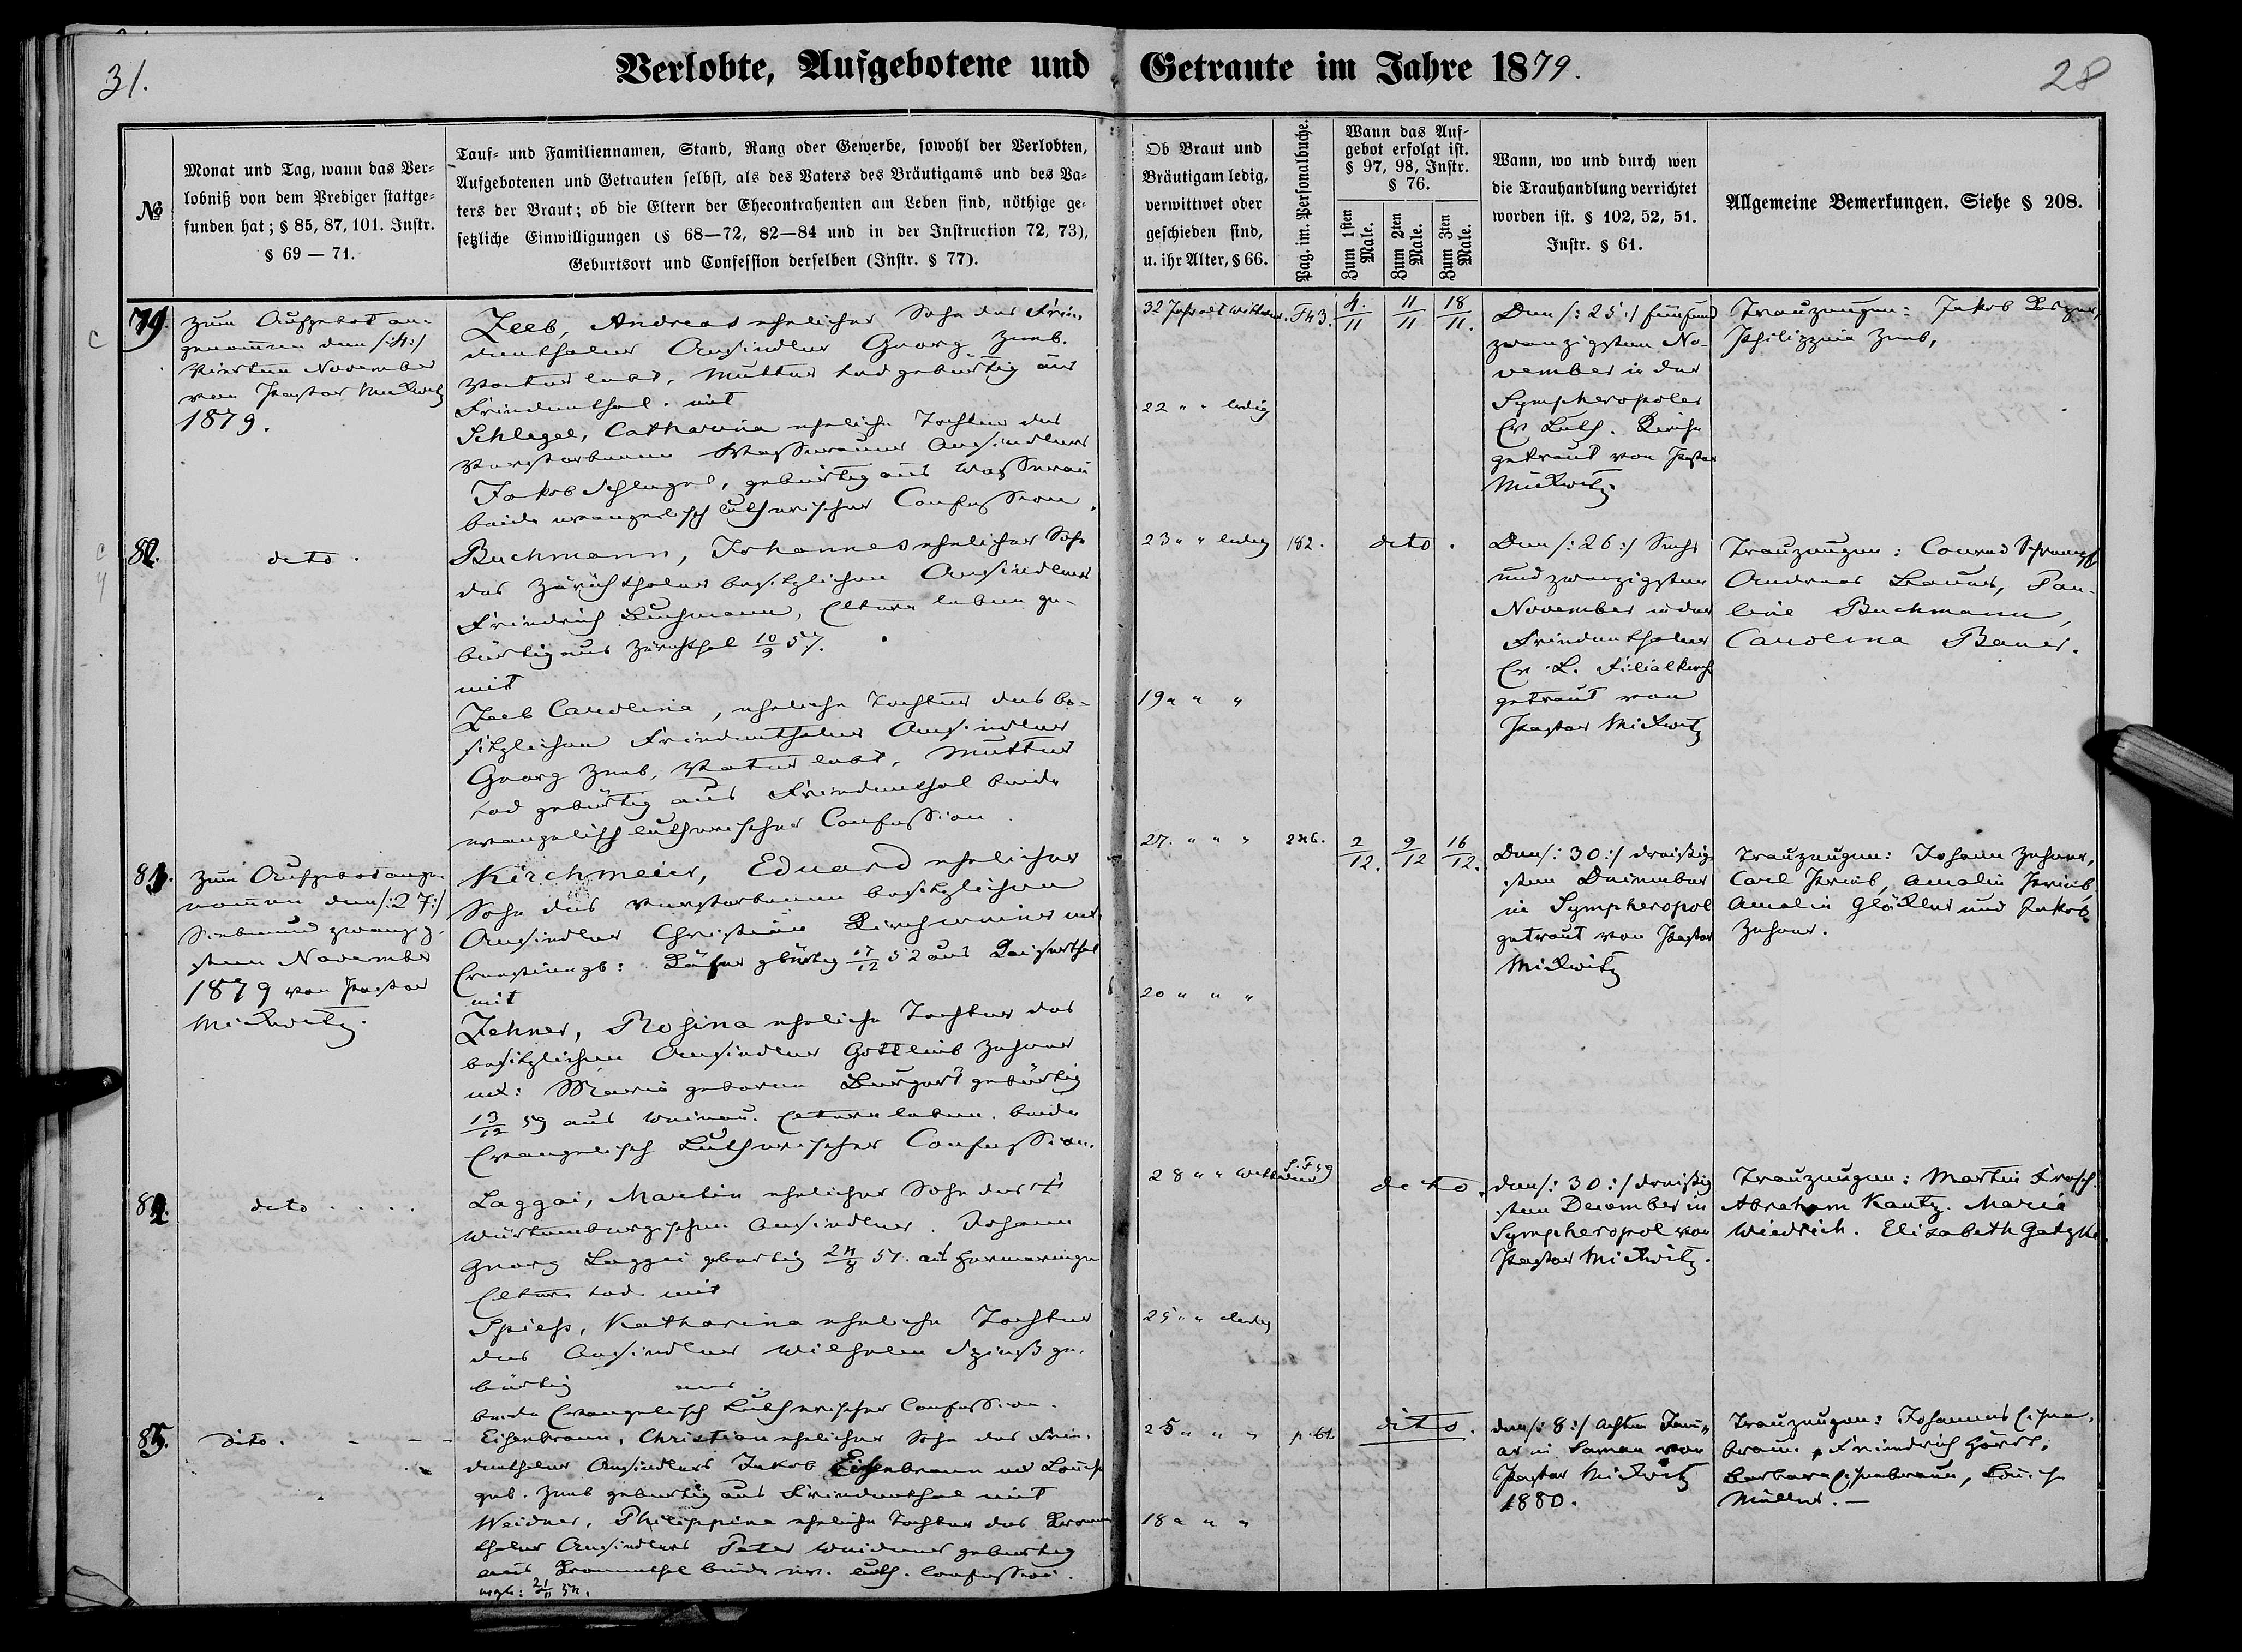 31.
Verlobte, Aufgebotene und Getraute im Jahre 1879.
28
№
Monat und Tag, wann das Ver-
lobniß von dem Prediger stattge-
funden hat; § 85, 87, 101. Instr.
§ 69 — 71.
Tauf- und Familiennamen, Stand, Rang oder Gewerbe, sowohl der Verlobten,
Aufgebotenen und Getrauten selbst, als des Vaters des Bräutigams und des Va-
ters der Braut; ob die Eltern der Ehecontrahenten am Leben sind, nöthige ge-
setzliche Einwilligungen (§ 68—72, 82—84 und in der Instruction 72, 73),
Geburtsort und Confession derselben (Instr. § 77).
Ob Braut und
Bräutigam ledig,
verwittwet oder
geschieden sind,
u. ihr Alter, § 66.
Pag. im. Personalbuche.
Wann das Auf-
gebot erfolgt ist.
§ 97, 98, Instr.
§ 76.
Zum 1sten Male.
Zum 2ten Male.
Zum 3ten Male.
Wann, wo und durch wen
die Trauhandlung verrichtet
worden ist. § 102, 52, 51.
Instr. § 61.
Allgemeine Bemerkungen. Siehe § 208.
79.
Zum Aufgebot an-
genommen den /:4:/
Vierten November
von Pastor Mickwitz
1879.
Zeeb, Andreas ehelicher Sohn des Frie-
denthaler Ansiedler Georg Zeeb.
Vater lebt, Mutter tod gebürtig aus
Friedenthal. mit
Schlegel, Catharina eheliche Tochter des
Verstorbenen Wasserauer Ansiedlers
Jakob Schlegel, gebürtig aus Wasserau
beide evangelisch lutherischer Confession.
32 Jahr alt Wittwer.
22 " " ledig
F 43.
4/11
11/11
18/11.
Den /:25:/ fünfund
zwanzigsten No-
vember in der
Sympheropoler
Ev Luth. Kirche
getraut von Pastor
Mickwitz.
Trauzeugen: Jakob
Philippina Zeeb,
dito.
Buchmann, Johannes ehelicher Sohn
des Zürichthaler besitzlichen Ansiedlers
Friedrich Buchmann, Eltern leben ge-
bürtig aus Zürichthal 10/9 57.
mit
Zeeb Carolina, eheliche Tochter des be-
sitzlichen Friedenthaler Ansiedler
Georg Zeeb, Vater lebt, Mutter
tod gebürtig aus Friedenthal beide
evangelisch lutherischer Confession.
23 " " ledig
19 " " "
182.
dito.
Den /:26:/ Sechs
und zwanzigsten
November in der
Friedenthaler
Ev. L. Filialkirche
getraut von
Pastor Mickwitz
Trauzeugen: Conrad Schrempf
Andreas Bauer, Pau-
line Buchmann,
Carolina Bauer.
Zum Aufgebot ange-
nommen den /:27:/
Siebenund zwanzig-
sten November
1879 von Pastor
Mickwitz.
Kirchmeier, Eduard ehelicher
Sohn des verstorbenen besitzlichen
Ansiedler Christian Kirchmeier und
Ernestine geb: gebürtig 17/12 52 aus Kaiserthal
mit
Zehner, Rosina eheliche Tochter des
besitzlichen Ansiedler Gottlieb Zehner
und: Maria geborne Burgart gebürtig
13/12 59 aus Weinau. Eltern leben. beide
Evangelisch Lutherischer Confession.
27. " " "
20 " " "
246.
2/12.
9/12
16/12.
Den /:30:/ dreißig-
sten Dezember
in Sympheropol
getraut von Pastor
Mickwitz
Trauzeugen: Johann Zehner,
Carl Prieb, Amalie Prieb,
Amalie Glökler und Jakob
Zehner.
dito . . . .
Laggai, Martin ehelicher Sohn des
würtembergischen Ansiedler. Johann
Georg Laggai gebürtig 51. aus Hermaringen
Eltern tod. mit
Spiess, Katharina eheliche Tochter
des Ansiedler Wilhelm Spieß ge-
bürtig aus
beide Evangelisch Lutherischer Confession.
28 " " Wittwer
25 " " ledig
dito.
den /:30:/ dreißig
sten Dezember in
Sympheropol von
Pastor Mickwitz.
Trauzeugen: Martin Frasch.
Abraham Kautz. Maria
Wiedrich. Elisabeth
85.
Dito. - - -
Eisenbraun, Christian ehelicher Sohn des Frie-
denthaler Ansiedlers Jakob Eisenbraun und Louise
geb. Zeeb gebürtig aus Friedenthal mit
Weidner, Philippine eheliche Tochter des Kronen
thaler Ansiedlers Peter Weidner gebürtig
aus Kronenthal beide ev. luth. Confession.
25 " " "
18 " " "
dito.
den /:8:/ Achten Janu-
ar in Saman von
Pastor Mickwitz
1880.
Trauzeugen: Johannes Eisen-
braun, Friedrich
Barbara Eisenbraun, Louise
Müller. —